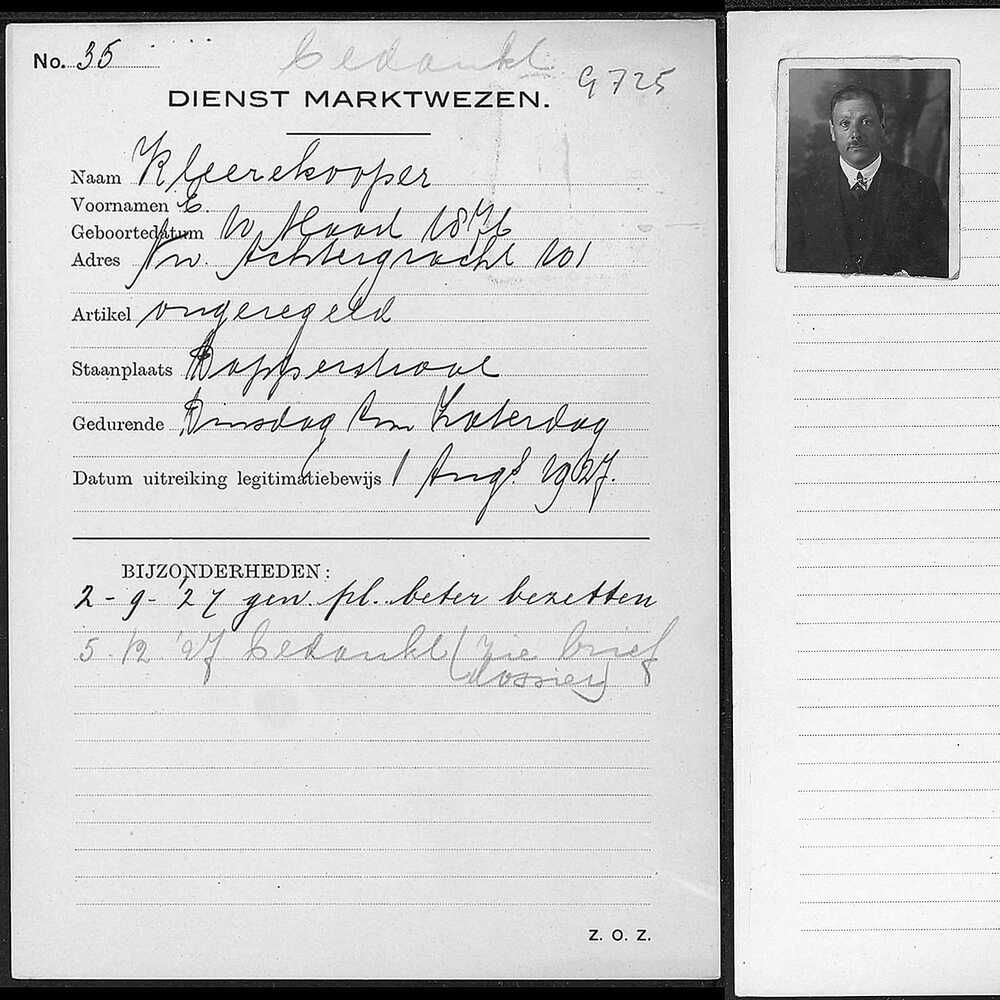 No. 35
bedankt
G 725
DIENST MARKTWEZEN.
Naam Kleerekooper
Voornamen E.
Geboortedatum 10 Maart 1876
Adres Nw. Achtergracht 101
Artikel ongeregeld
Staanplaats Dapperstraat
Gedurende Dinsdag t/m Zaterdag
Datum uitreiking legitimatiebewijs 1 Augs. 1927.
BIJZONDERHEDEN:
2-9-'27 gew. pl. beter bezetten
5/12 '27 bedankt (zie brief
dossier)
Z. O. Z.